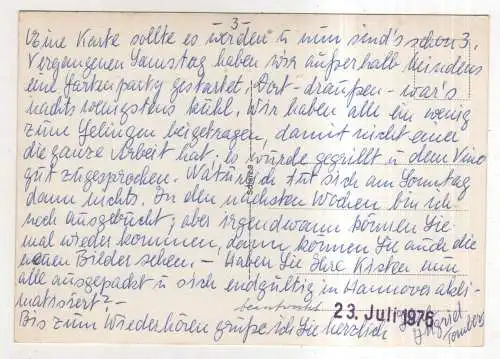 3
Eine Karte sollte es werden u nun sind's schon 3.
Vergangenen Samstag haben wir außerhalb Mindens
eine Gartenparty gestartet; Dort - draußen - war's
nachts wenigstens kühl, wir haben alle ein wenig
zum Gelingen beigetragen, damit nicht einer
die ganze Arbeit hat; es wurde gegrillt u dem Vino
gut zugesprochen. Natürlich tut sich am Sonntag
dann nichts. In den nächsten Wochen bin ich
noch ausgebucht; aber irgendwann können Sie
mal wieder kommen, dann können Sie auch die
neuen Bilder sehen. - Haben Sie Ihre Kisten nun
alle ausgepackt u sich endgültig in Hannover akli-
matisiert? -
beantwortet
23. Juli 1976
Bis zum Wiederhören grüße ich Sie herzlich
Ingrid